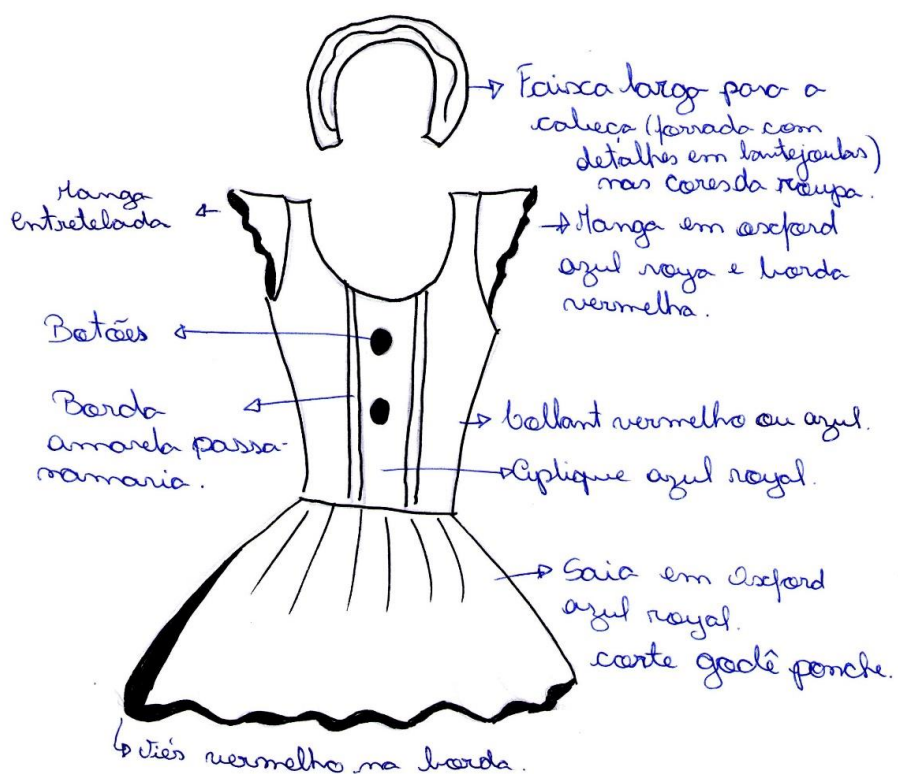 Faixa larga para a
cabeça (forrada com
detalhes em lantejoulas)
nas cores da roupa.
Manga
entretelada
Manga em oxford
azul roya e borda
vermelha.
Botões
Borda
amarela passa-
namaria.
Collant vermelho ou azul.
Aplique azul royal.
Saia em Oxford
azul royal.
corte godê ponche.
Viés vermelho na borda.